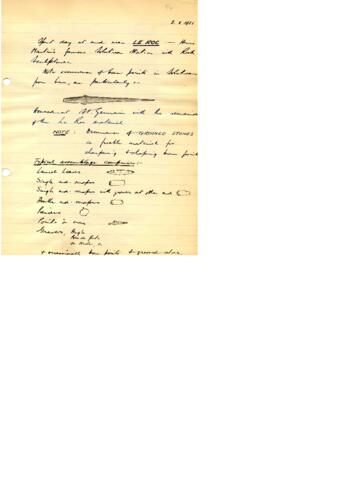 Spent day at and near LE ROC — Henri
Martin's famous Solutrean Station with Rock
Sculptures.
Note occurrence of bone points in Solutrean
from here, as particularly
Housed at St Germain with the remainder
of the Le Roc material
NOTE: Occurrence of GROOVED STONES
in friable material for
sharpening & shaping bone points
Typical assemblage comprises:
Laurel Leaves
Single end-scrapers
Single end-scrapers with graver at other end
Double end-scrapers
Points
Gravers,
+ occasionally bone points & grooved stones